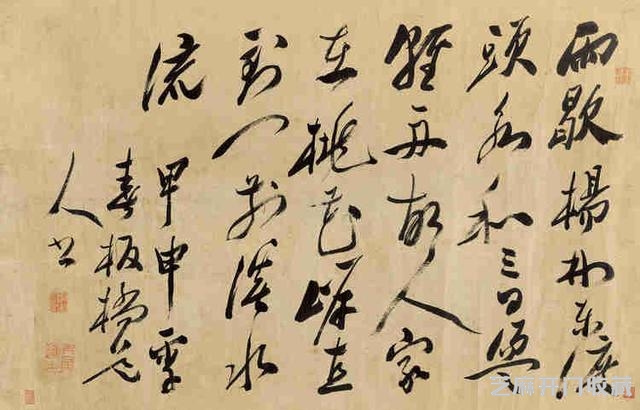 雨歇楊林東渡
頭永和三日盪
輕舟故人家
在桃花岸直
到門前溪水
流
甲申季
春板橋老
人書
芝麻开门收藏